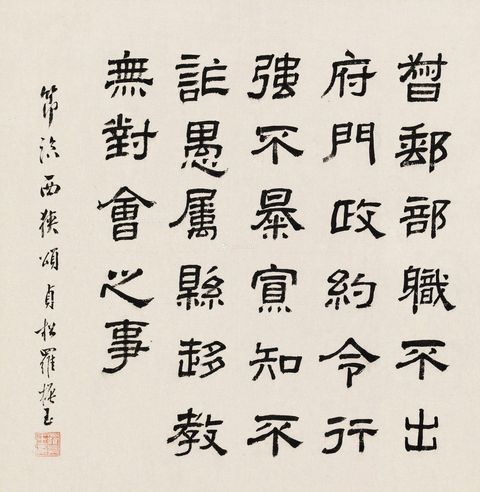 督郵部職不出
府門政約令行
強不暴寡知不
詐愚屬縣趍教
無對會之事
節臨西狹頌貞松羅振玉